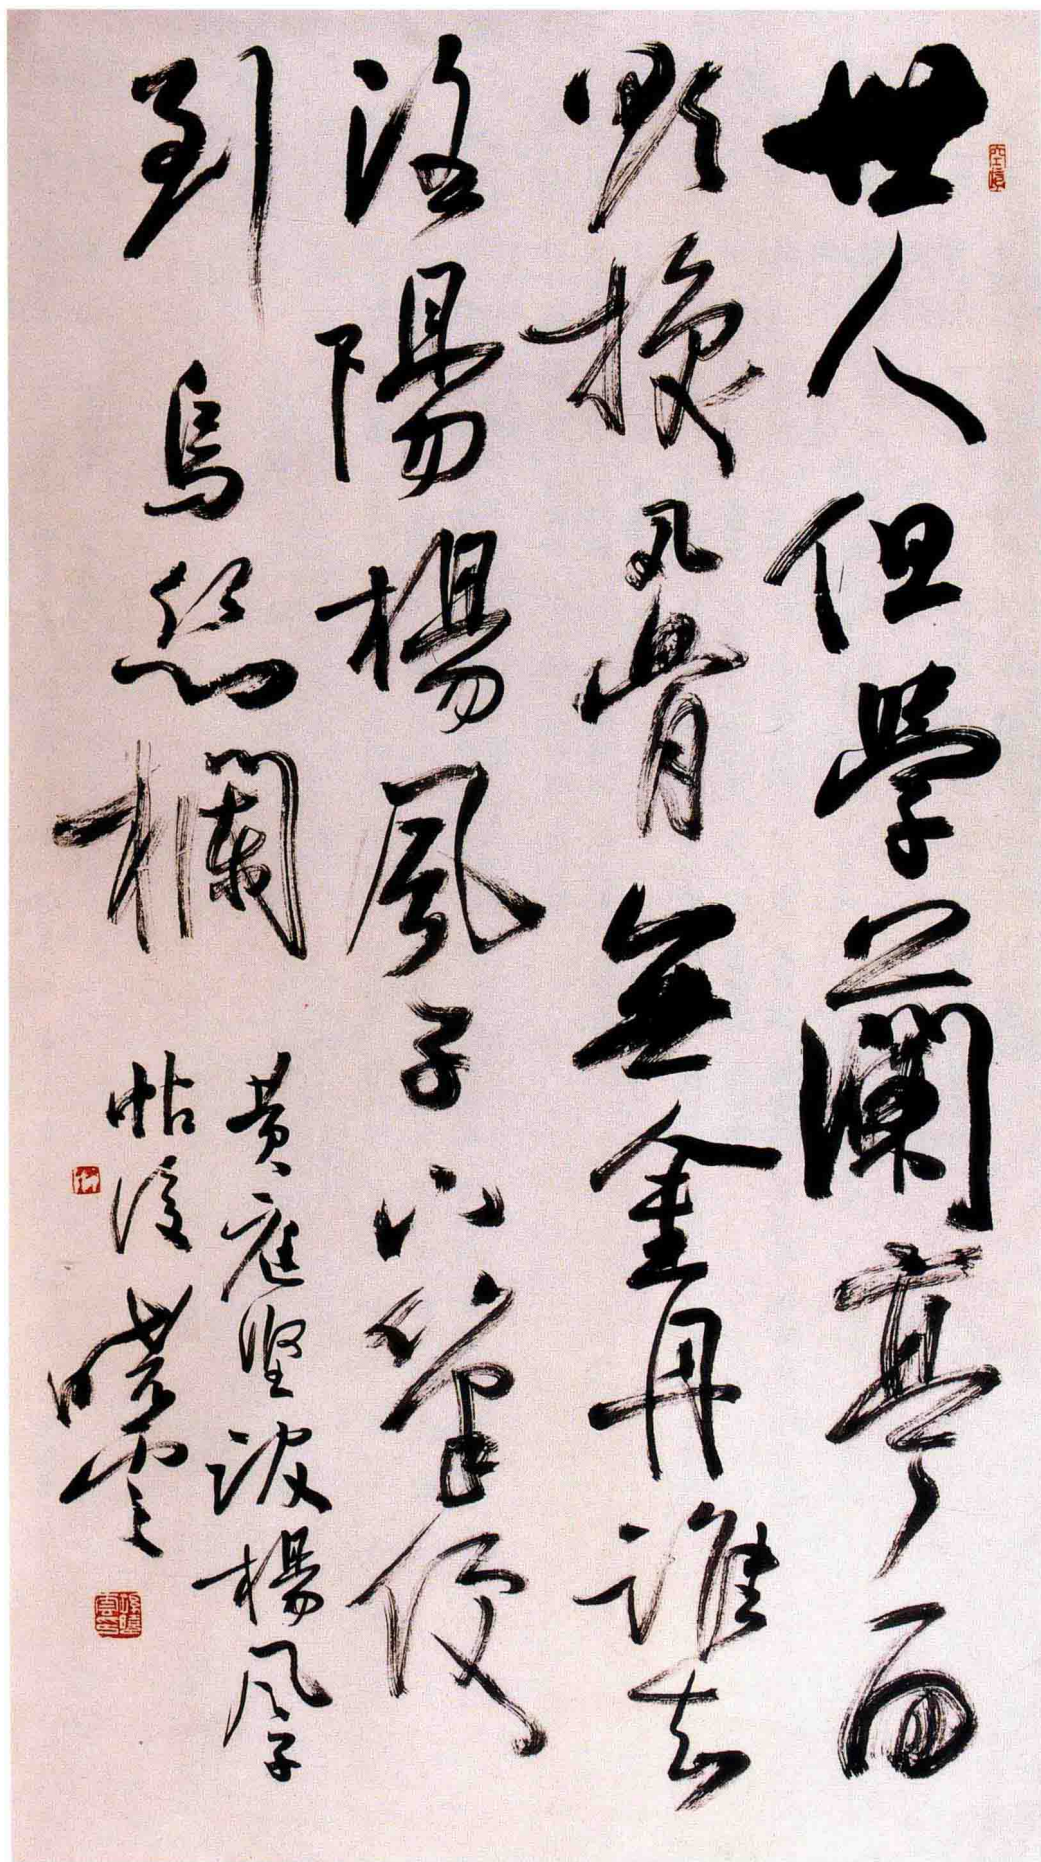 世人但學蘭亭面
欲換凡骨無金丹誰知
洛陽楊風子下筆便
到烏絲欄
黄庭堅跋楊风子
帖後曉雲